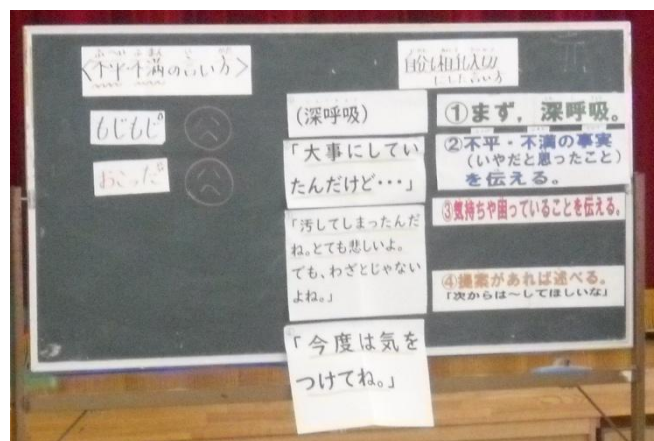 <不平・不満の言い方>
もじもじ
おこった
自分も相手も大切
にした言い方
(深呼吸)
「大事にしてい
たんだけど・・・」
「汚してしまったんだ
ね。とても悲しいよ。
でも、わざとじゃない
よね。」
「今度は気を
つけてね。」
①まず，深呼吸。
②不平・不満の事実
(いやだと思ったこと)
を伝える。
③気持ちや困っていることを伝える。
④提案があれば述べる。
「次からは～してほしいな」